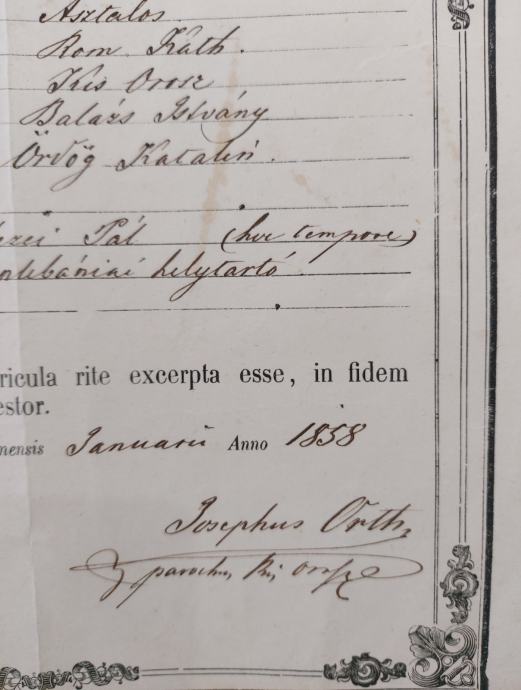 Asztalos
Rom Kath.
Kis Orosz
Balázs István
Ördög Katalin.
Pál (hoc tempore)
helytartó
ricula rite excerpta esse, in fidem
estor.
mensis Januarii Anno 1858
Josephus Orth
parochus Kis orosz